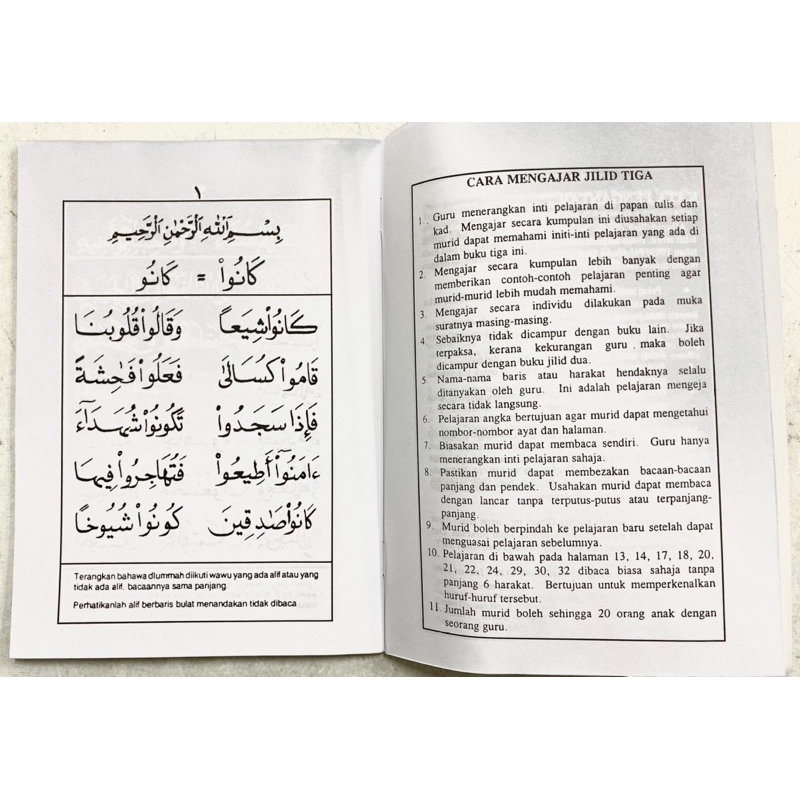 ١
بِسْمِ ٱللَّهِ ٱلرَّحْمَٰنِ ٱلرَّحِيمِ
كَانُواْ = كَانُو
كَانُواْشِيَعاً وَقَالُواْقُلُوبُنَا
قَامُواْ كُسَالَىٰ فَعَلُواْ فَٰحِشَةً
فَإِذَا سَجَدُواْ تَكُونُواْ شُهَدَآءَ
ءَامَنُوٓاْ أَطِيعُواْ فَتُهَاجِرُواْ فِيهَا
كَانُواْ صَٰدِقِينَ كُونُواْ شُيُوخًا
Terangkan bahawa dlummah diikuti wawu yang ada alif atau yang
tidak ada alif. bacaannya sama panjang.
Perhatikanlah alif berbaris bulat menandakan tidak dibaca
CARA MENGAJAR JILID TIGA
1. Guru menerangkan inti pelajaran di papan tulis dan
kad. Mengajar secara kumpulan ini diusahakan setiap
murid dapat memahami initi-inti pelajaran yang ada di
dalam buku tiga ini.
2. Mengajar secara kumpulan lebih banyak dengan
memberikan contoh-contoh pelajaran penting agar
murid-murid lebih mudah memahami.
3. Mengajar secara individu dilakukan pada muka
suratnya masing-masing.
4. Sebaiknya tidak dicampur dengan buku lain. Jika
terpaksa, kerana kekurangan guru, maka boleh
dicampur dengan buku jilid dua.
5. Nama-nama baris atau harakat hendaknya selalu
ditanyakan oleh guru. Ini adalah pelajaran mengeja
secara tidak langsung.
6. Pelajaran angka bertujuan agar murid dapat mengetahui
nombor-nombor ayat dan halaman.
7. Biasakan murid dapat membaca sendiri. Guru hanya
menerangkan inti pelajaran sahaja.
8. Pastikan murid dapat membezakan bacaan-bacaan
panjang dan pendek. Usahakan murid dapat membaca
dengan lancar tanpa terputus-putus atau terpanjang-
panjang.
9. Murid boleh berpindah ke pelajaran baru setelah dapat
menguasai pelajaran sebelumnya.
10. Pelajaran di bawah pada halaman 13, 14, 17, 18, 20,
21, 22, 24, 29, 30, 32 dibaca biasa sahaja tanpa
panjang 6 harakat. Bertujuan untuk memperkenalkan
huruf-huruf tersebut.
11. Jumlah murid boleh sehingga 20 orang anak dengan
seorang guru.